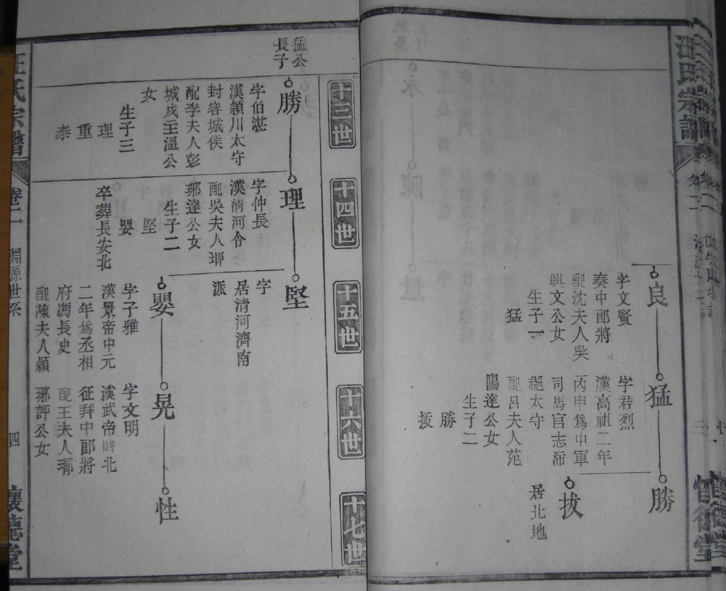 汪氏宗譜
懷德堂
良
字文賢
秦中郎將
配沈夫人吳
興文公女
生子一
猛
猛
字君烈
漢高祖二年
丙申為中軍
司馬官志沛
郡太守
配呂夫人范
陽達公女
生子二
勝
拔
勝
拔
居北地
十三世
十四世
十五世
十六世
十七世
猛公
長子
勝
字伯湛
漢潁川太守
封容城侯
配李夫人彭
城成王溫公
女
生子三
理
重
泰
理
字仲長
漢清河令
配吳夫人瑯
琊達公女
生子二
堅
嬰
卒葬長安北
堅
字
居清河濟南
派
嬰
字子雅
漢景帝中元
二年為丞相
府灊長史
配陳夫人潁
晃
字文明
漢武帝時北
征拜中郎將
配王夫人瑯
琊許公女
性
汪氏宗譜
卷二
淵源世系
四
懷德堂